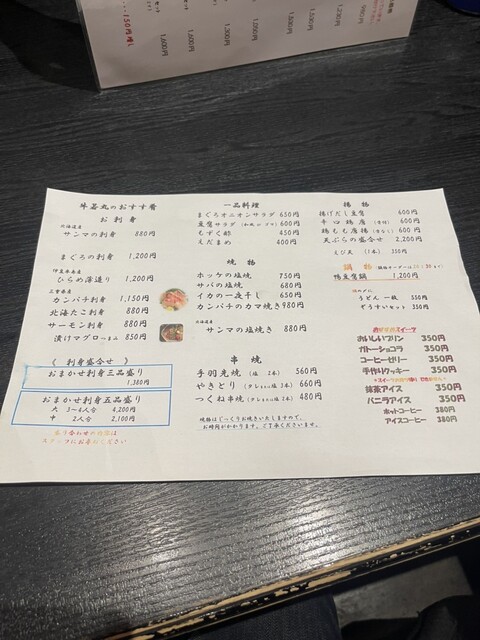 150円増し
1,600円
1,600円
1,300円
1,500円
1,500円
1,250円
980円
牛若丸のおすす肴
お刺身
北海道産
サンマの刺身 880円
まぐろの刺身 1,200円
伊豆半島産
ひらめ薄造り 1,200円
三重県産
カンパチ刺身 1,150円
北海たこ刺身 880円
サーモン刺身 880円
漬けマグロ 850円
《 刺身盛合せ 》
おまかせ刺身三品盛り
1,380円
おまかせ刺身五品盛り
大 3~4人台 4,200円
中 2人台 2,100円
盛り合わせの内容は
スタッフにお尋ねください
一品料理
まぐろオニオンサラダ 650円
豆腐サラダ 600円
もずく酢 450円
えだまめ 400円
焼物
ホッケの塩焼 750円
サバの塩焼 680円
イカの一夜干し 650円
カンパチのカマ焼き980円
北海道産
サンマの塩焼き 880円
串焼
手羽先焼 (塩 2本) 560円
やきとり (タレor塩 3本) 660円
つくね串焼 (タレor塩 2本) 480円
焼物はじっくりお焼きいたしますので、
お時間がかかります。ご了承くださいませ。
揚物
揚げだし豆腐 600円
手心鶏唐 600円
鶏もも唐揚 600円
天ぷらの盛合せ 2,200円
えび天 (1本) 350円
鍋物
鴨豆腐鍋 1,200円
うどん 一皿 550円
ぞうすいセット 350円
おいしいプリン 350円
ガトーショコラ 350円
コーヒーゼリー 350円
手作りクッキー 350円
抹茶アイス 350円
バニラアイス 350円
ホットコーヒー 380円
アイスコーヒー 380円